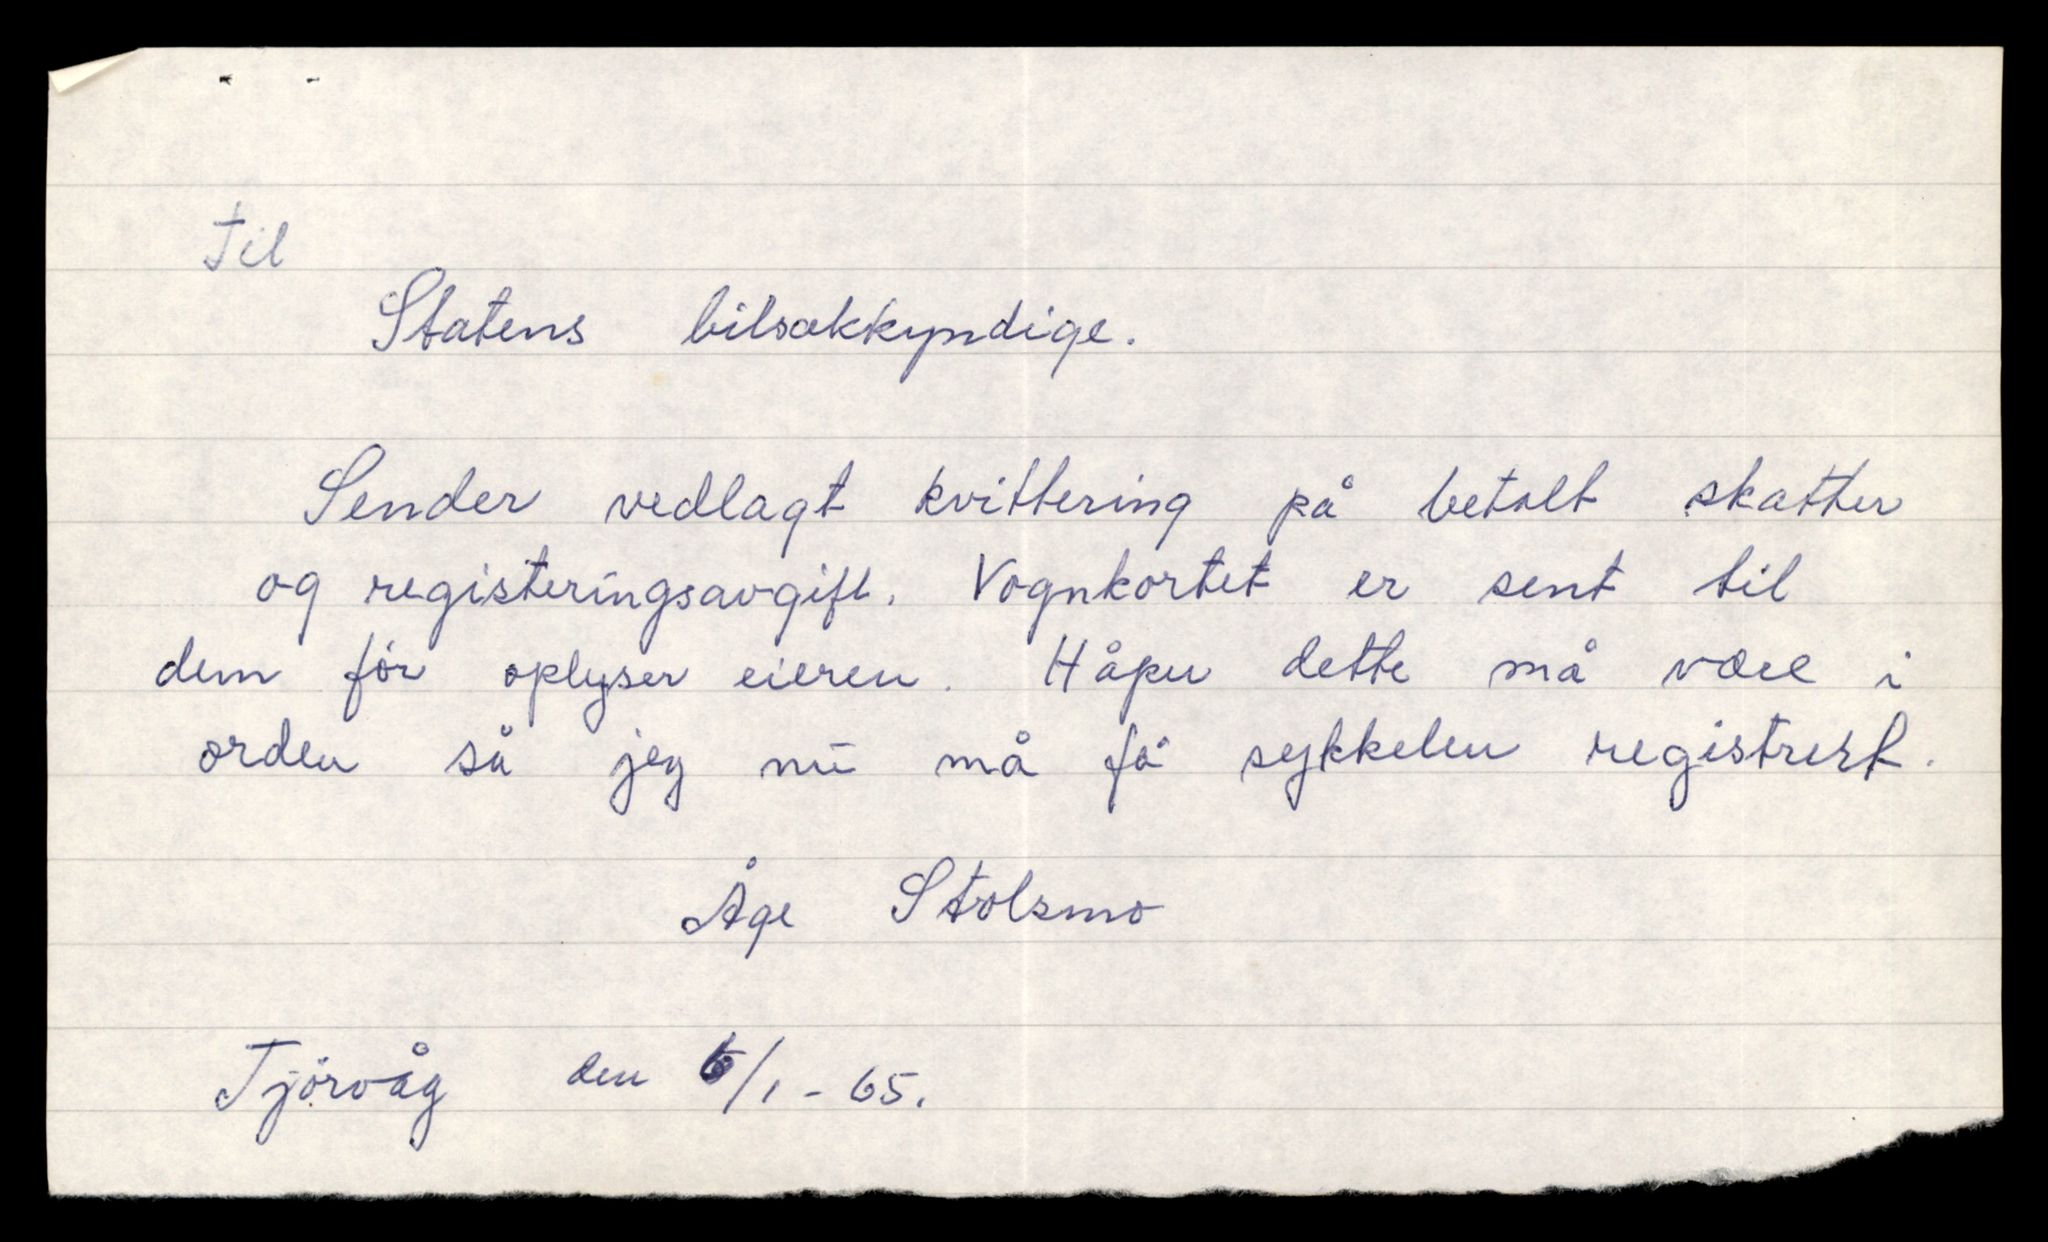 Til
Statens bilsakkyndige.
Sender vedlagt kvittering på betalt skatter
og registeringsavgift. Vognkortet er sent til
dem för oplyser eieren. Håper dette må være i
orden så jeg nu må få sykkelen registrert.
Åge Stolsmo
Tjörvåg den 6/1-65.